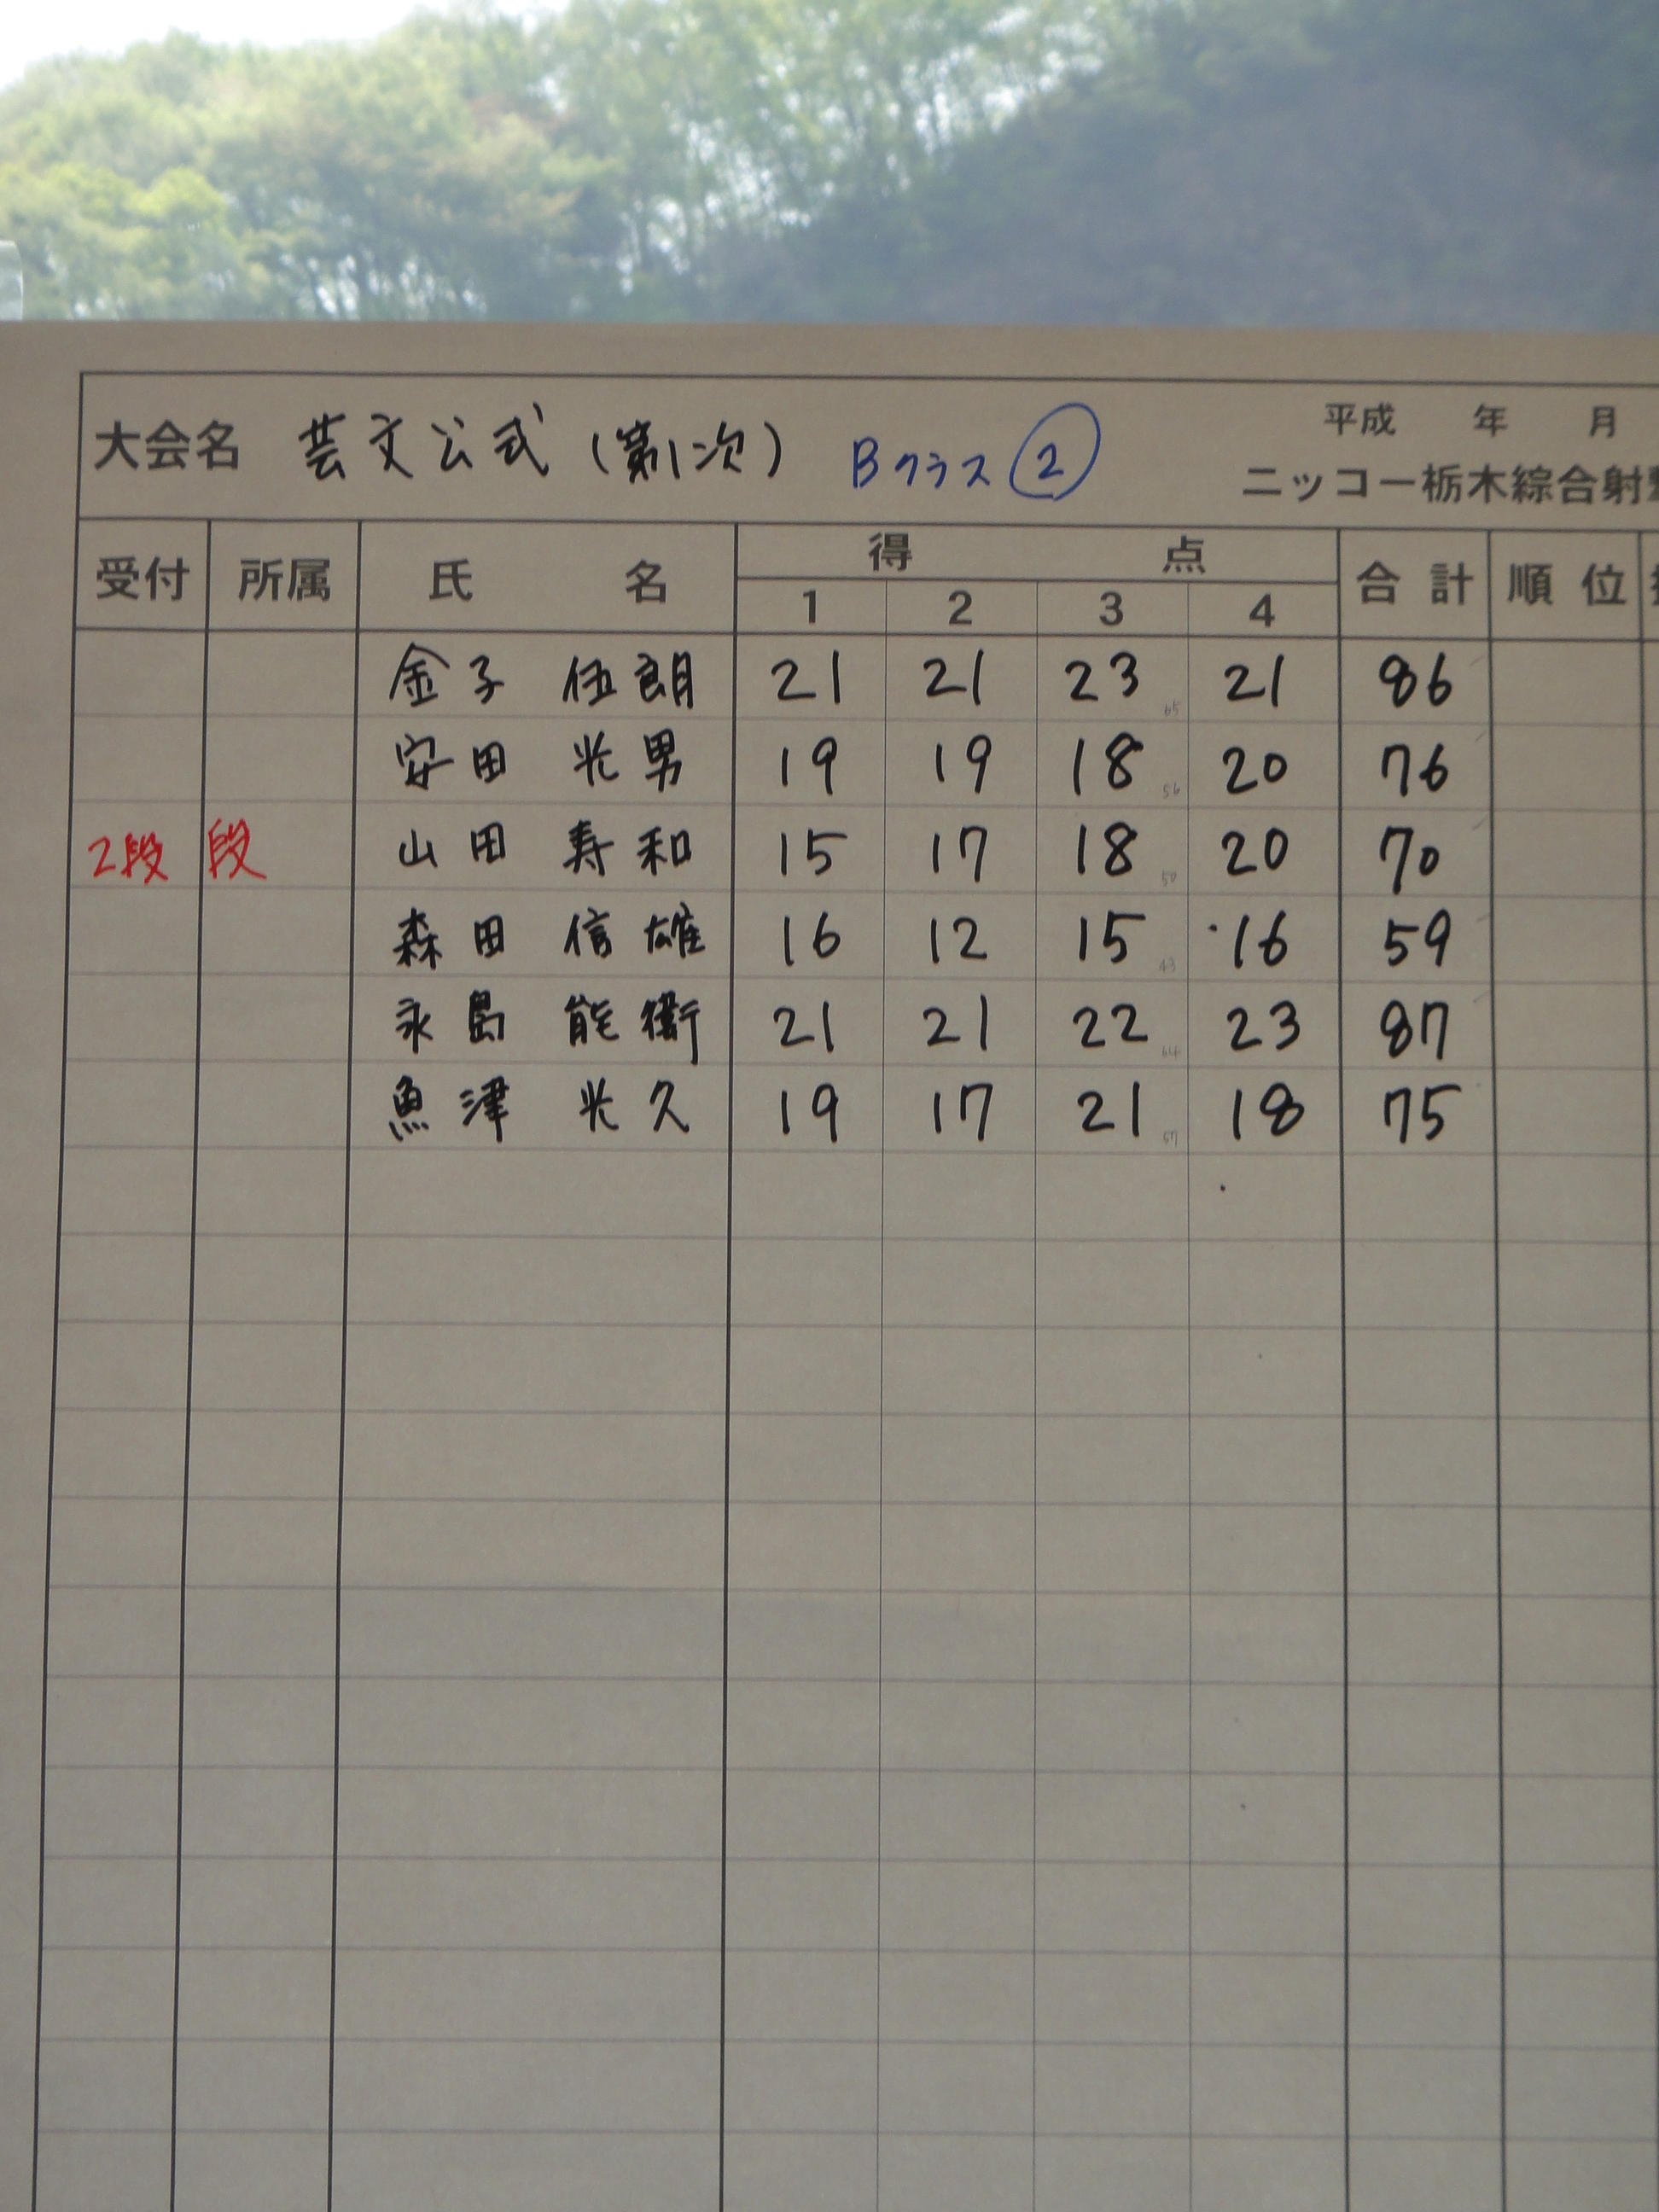 大会名 芸文公式(第1次) Bクラス ② 平成 年 月
ニッコー栃木綜合射撃
受付 所属 氏 名 得 点 合計 順位
1 2 3 4
金子 伍朗 21 21 23 65 21 86
安田 光男 19 19 18 56 20 76
2段 段 山田 寿和 15 17 18 50 20 70
森田 信雄 16 12 15 43 16 59
永島 能衛 21 21 22 64 23 87
魚津 光久 19 17 21 57 18 75